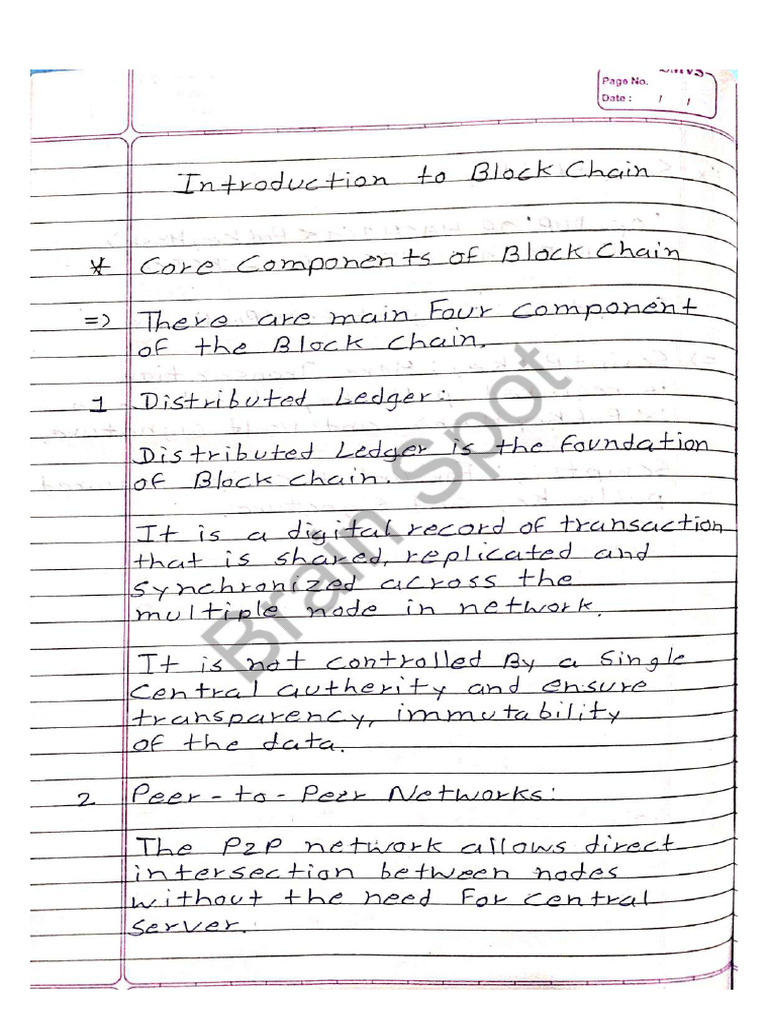 SMVS
Page No.
Date : / /
Introduction to Block Chain
* Core Components of Block Chain
=> There are main Four component
of the Block Chain.
1 Distributed Ledger:
Distributed Ledger is the Foundation
of Block chain.
It is a digital record of transaction
that is shared, replicated and
synchronized across the
multiple node in network.
It is not controlled By a single
central autherity and ensure
transparency, immutability
of the data.
2 Peer-to-Peer Networks:
The P2P network allows direct
intersection between nodes
without the need For central
server.
Brain Spot